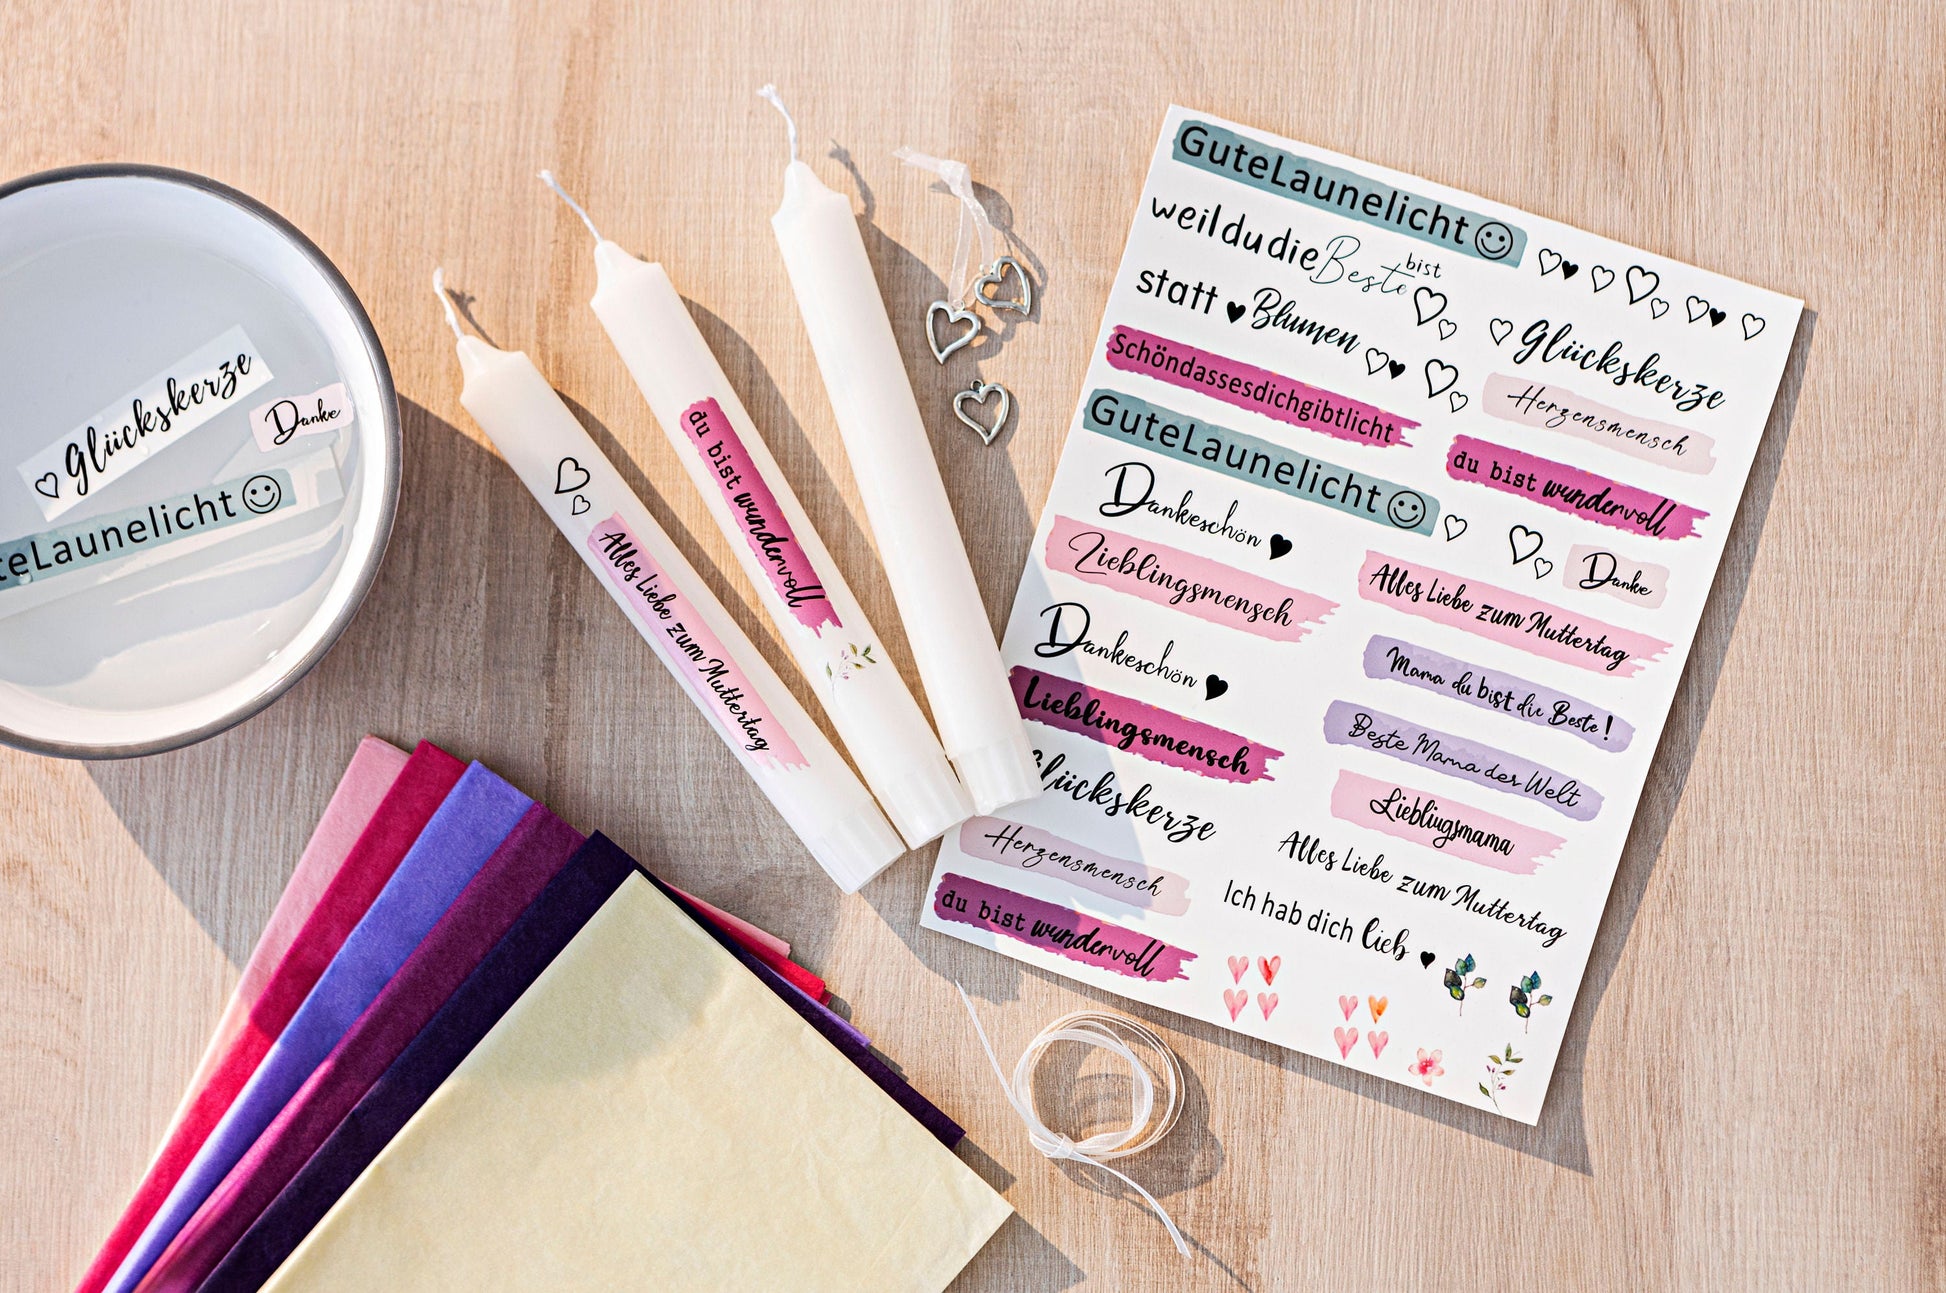 Glückskerze
Danke
teLaunelicht
Alles Liebe zum Muttertag
du bist wundervoll
GuteLaunelicht
weildudieBeste bist
statt Blumen
Glückskerze
Schöndassesdichgibtlicht
Herzensmensch
GuteLaunelicht
du bist wundervoll
Dankeschön
Danke
Lieblingsmensch
Alles Liebe zum Muttertag
Dankeschön
Mama du bist die Beste!
Lieblingsmensch
Beste Mama der Welt
Glückskerze
Lieblingsmama
Herzensmensch
Alles Liebe zum Muttertag
du bist wundervoll
Ich hab dich lieb